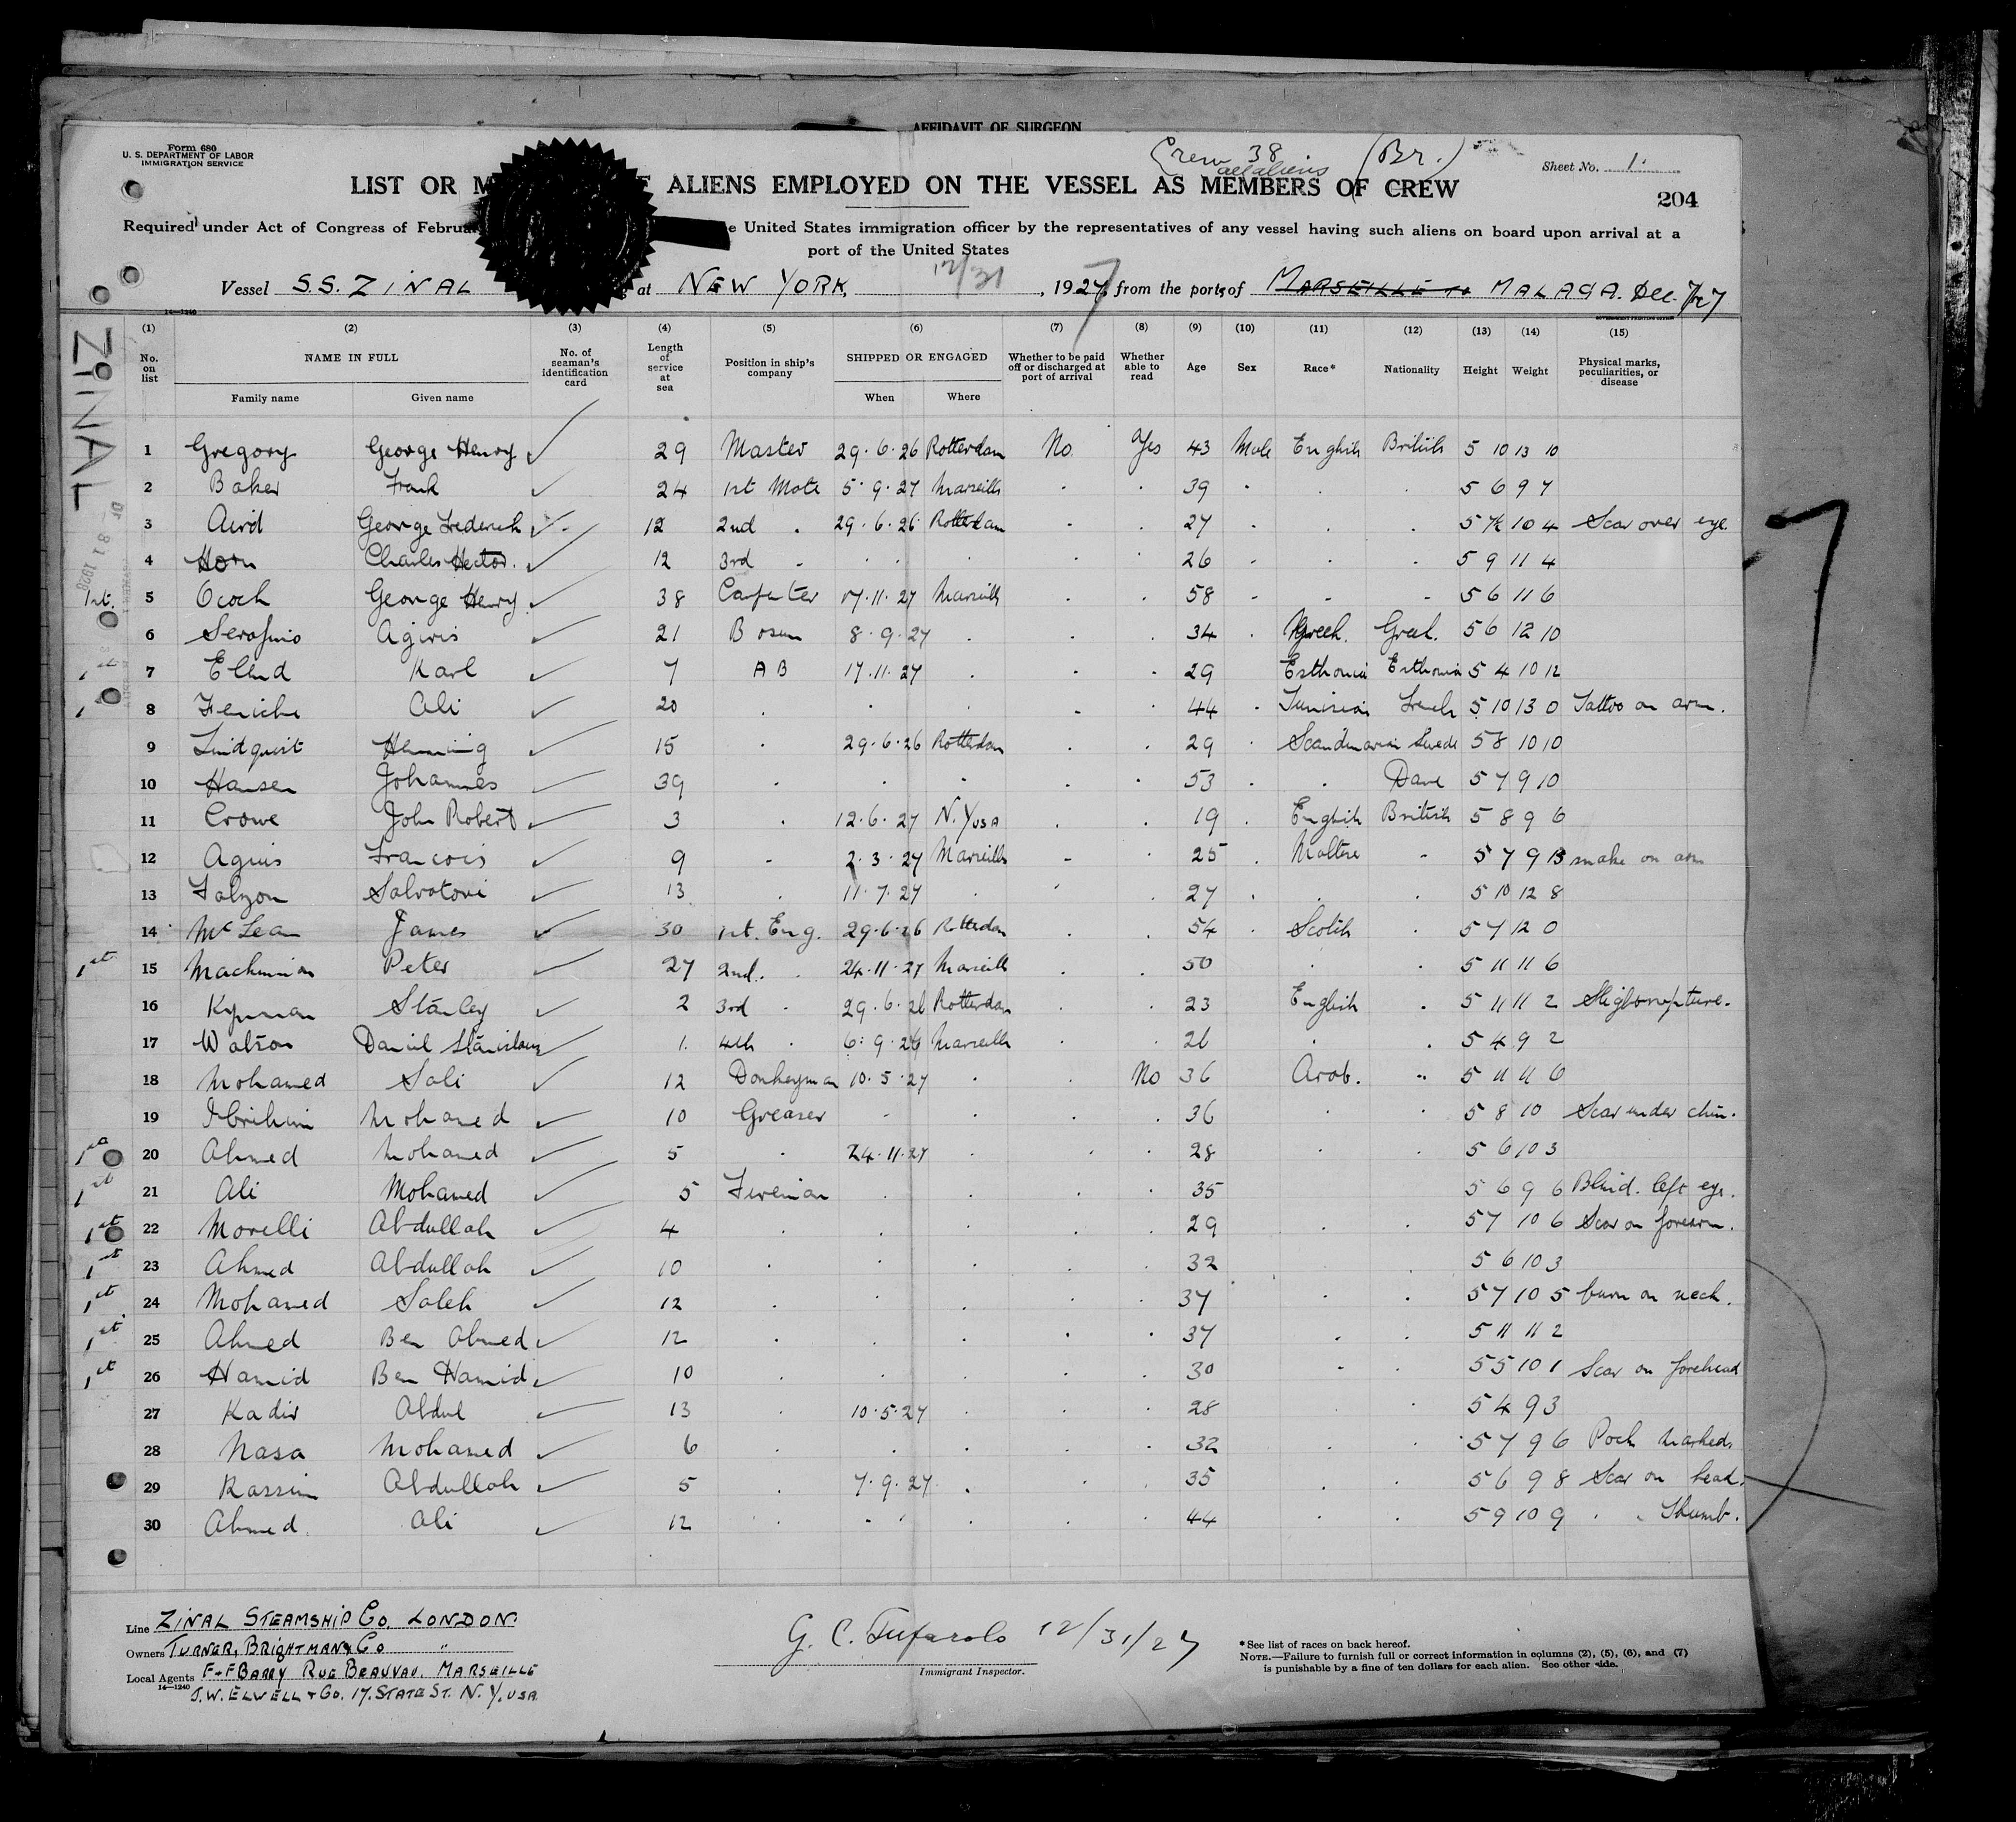 AFFIDAVIT OF SURGEON
Form 680
U. S. DEPARTMENT OF LABOR
IMMIGRATION SERVICE
Crew 38 (Br.)
all aliens
Sheet No. 1.
LIST OR ALIENS EMPLOYED ON THE VESSEL AS MEMBERS OF CREW
204
Required under Act of Congress of United States immigration officer by the representatives of any vessel having such aliens on board upon arrival at a
port of the United States
Vessel S.S. ZINAL at NEW YORK, 12/31, 1927, from the ports of MARSEILLE to MALAGA. Dec. 7/27
ZINAL
(1) (2) (3) (4) (5) (6) (7) (8) (9) (10) (11) (12) (13) (14) (15)
No. on list NAME IN FULL No. of seaman's identification card Length of service at sea Position in ship's company SHIPPED OR ENGAGED Whether to be paid off or discharged at port of arrival Whether able to read Age Sex Race* Nationality Height Weight Physical marks, peculiarities, or disease
Family name Given name When Where
1 Gregory George Henry 29 Master 29.6.26 Rotterdam No. Yes 43 Male English British 5 10 13 10
2 Baker Frank 24 1st Mate 5.9.27 Marseills 39 5 6 9 7
3 Aird George Frederick 12 2nd 29.6.26 Rotterdam 27 5 7½ 10 4 Scar over eye.
4 Horn Charles Hector. 12 3rd 26 5 9 11 4
1st. 5 Ocock George Henry 38 17.11.27 Marseills 58 5 6 11 6
6 Serafino Agiris 21 Bosun 8.9.27 34 Greek. Greek. 5 6 12 10
7 Karl 7 AB 17.11.27 29 Esthonia Esthonia 5 4 10 12
8 Feriche Ali 20 44 Tunisian French 5 10 13 0 Tattoo on arm.
9 Lindquist Henning 15 29.6.26 Rotterdam 29 Scandinavian Swede 5 8 10 10
10 Hansen Johannes 39 53 Dane 5 7 9 10
11 Crowe John Robert 3 12.6.27 N.Y USA 19 English British 5 8 9 6
12 Agius Francois 9 2.3.27 Marseills 25 Maltese 5 7 9 13 snake on arm
13 Falzon Salvatori 13 11.7.27 27 5 10 12 8
14 McLean James 30 1st. Eng. 29.6.26 Rotterdam 54 Scotch 5 7 12 0
1st 15 Peter 27 2nd. 24.11.27 Marseills 50 5 11 11 6
16 Kynman Stanley 2 3rd 29.6.26 Rotterdam 23 English 5 11 11 2
17 Watson Daniel Stanislaus 1. 4th 6.9.26 Marseills 26 5 4 9 2
18 Mohamed Sali 12 Donkeyman 10.5.27 No 36 Arab. 5 11 11 6
19 Ibrihim Mohamed 10 Greaser 36 5 8 10 Scar under chin.
20 Ahmed Mohamed 5 24.11.27 28 5 6 10 3
1st 21 Ali Mohamed 5 Fireman 35 5 6 9 6 Blind. left eye.
1st 22 Morelli Abdullah 4 29 5 7 10 6 Scar on forearm.
1st 23 Ahmed Abdullah 10 32 5 6 10 3
1st 24 Mohamed Saleh 12 37 5 7 10 5 burn on neck.
1st 25 Ahmed Ben Ahmed 12 37 5 11 11 2
1st 26 Hamid Ben Hamid 10 30 5 5 10 1 Scar on forehead
27 Kadir Abdul 13 10.5.27 28 5 4 9 3
28 Nasa Mohamed 6 32 5 7 9 6 Pock marked.
29 Kassim Abdullah 5 7.9.27. 35 5 6 9 8 Scar on head.
30 Ahmed Ali 12 44 5 9 10 9 " " Thumb.
Line ZINAL STEAMSHIP Co. LONDON.
Owners TURNER, BRIGHTMAN & Co "
Local Agents F & F BARRY RUE BEAUVAU. MARSEILLE
J.W. ELWELL & Co. 17. STATE ST. N.Y. USA.
14—1240
G. C. Tufarolo 12/31/27
Immigrant Inspector.
*See list of races on back hereof.
NOTE.—Failure to furnish full or correct information in columns (2), (5), (6), and (7)
is punishable by a fine of ten dollars for each alien. See other side.